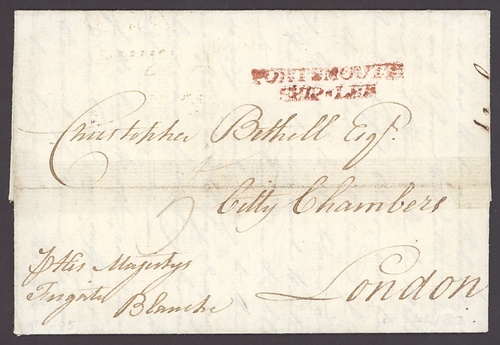 PORTSMOUTH
SHIP-LRE
Christopher Bethell Esqr.
Citty Chambers
London
P His Majestys
Frigate
Blanche